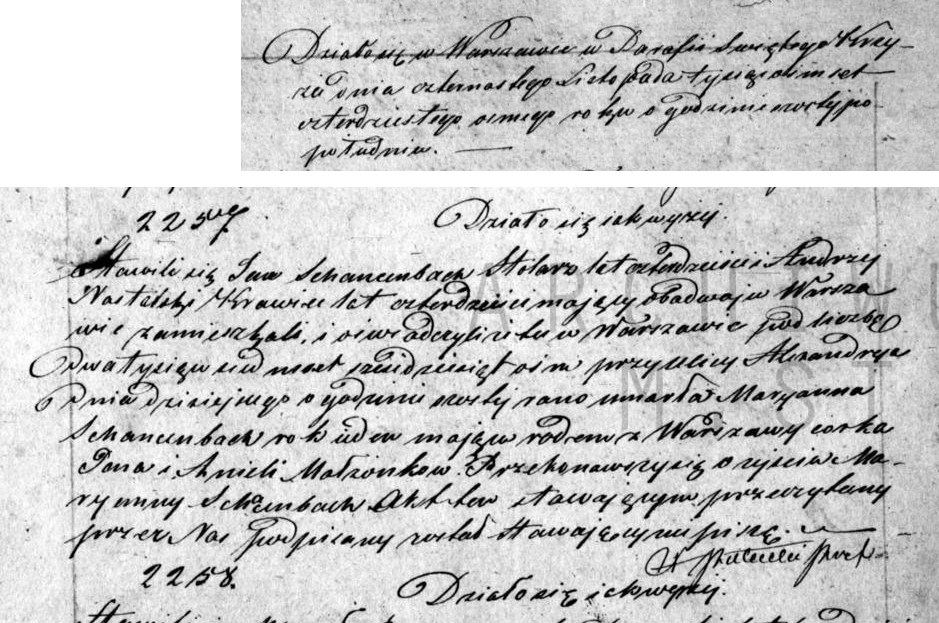 Działo się w Warszawie w Parafii Świętego Krzy-
ża dnia czternastego Listopada tysiąc ośmset
czterdziestego osmego roku o godzinie szostej po
południu. —
2257 Działo się jak wyżej.
Stawili się Jan Schancenbach Stolarz lat czterdzieści i Andrzej
Nastelski Krawiec lat czterdzieści mający obadwaj w Warsza
wie zamieszkali, i oświadczyli iż tu w Warszawie pod liczbą
dwa tysiącu siedmset sześćdziesiąt ośm przy ulicy Alexandrya
Dnia dzisiejszego o godzinie szostej rano umarła Maryanna
Schancenbach rok jeden mająca rodem z Warszawy corka
Jana i Anieli Małżonkow. Przekonawszy się o zejściu Ma-
ryanny Schancenbach Akt ten stawającym przeczytany
przez Nas podpisany został Stawający nie piszą.
2258. Działo się jak wyżej.
Stawili się